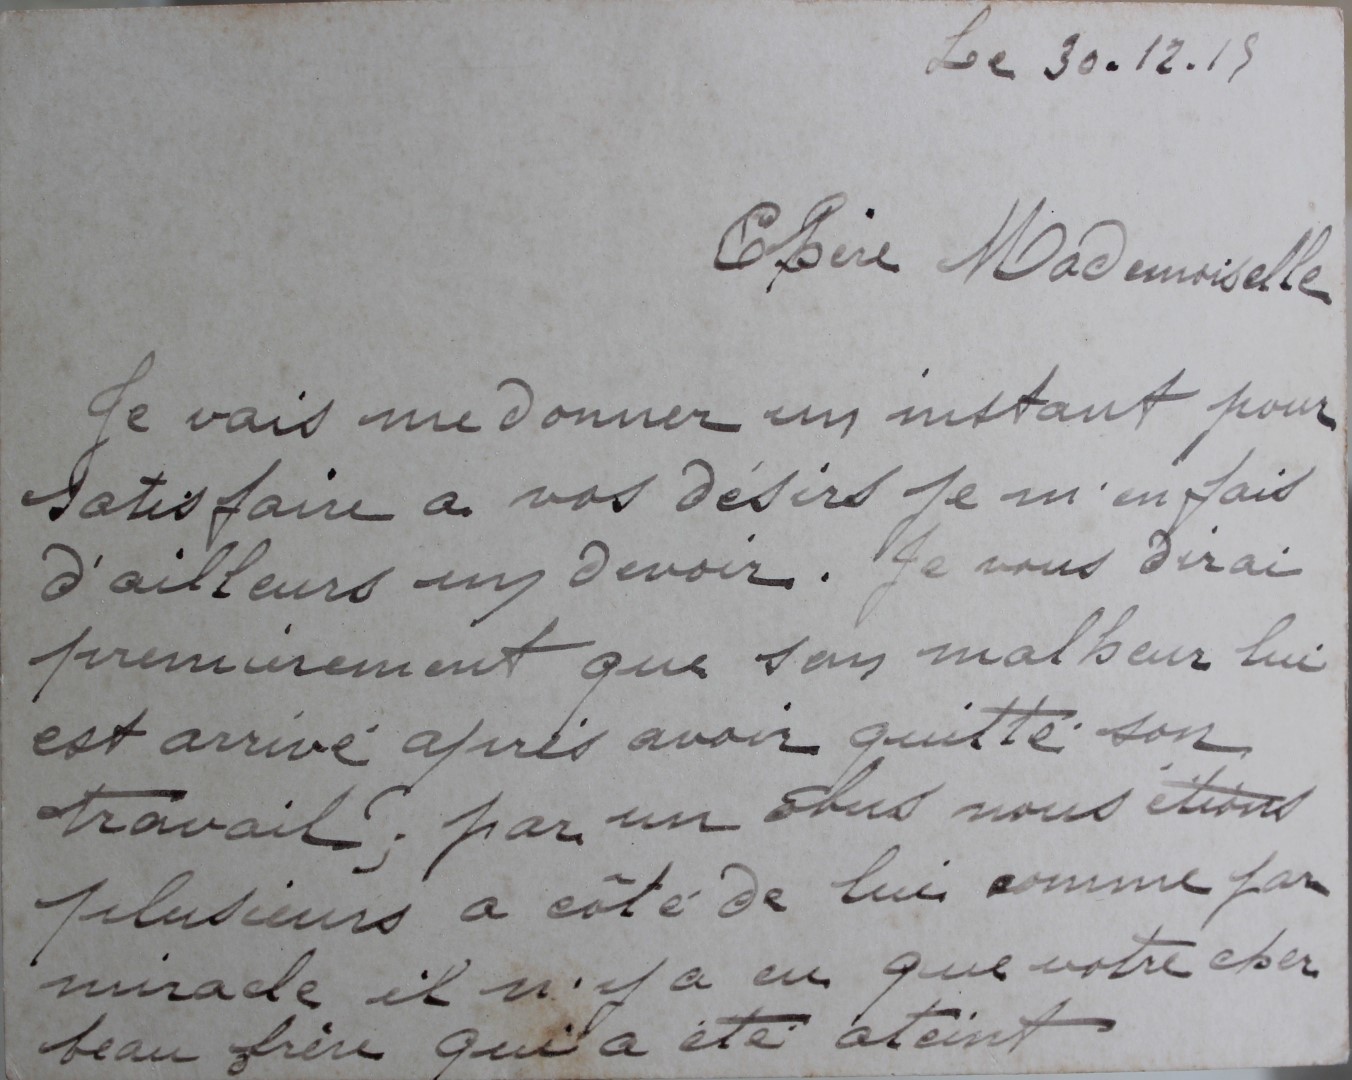 Le 30.12.15
Chère Mademoiselle
Je vais me donner un instant pour
satisfaire a vos désirs je m'en fais
d'ailleurs un devoir. Je vous dirai
premièrement que son malheur lui
est arrivé après avoir quitté son
travail ; par un obus nous étions
plusieurs a côté de lui comme par
miracle il n'y a eu que votre cher
beau frère qui a été ateint